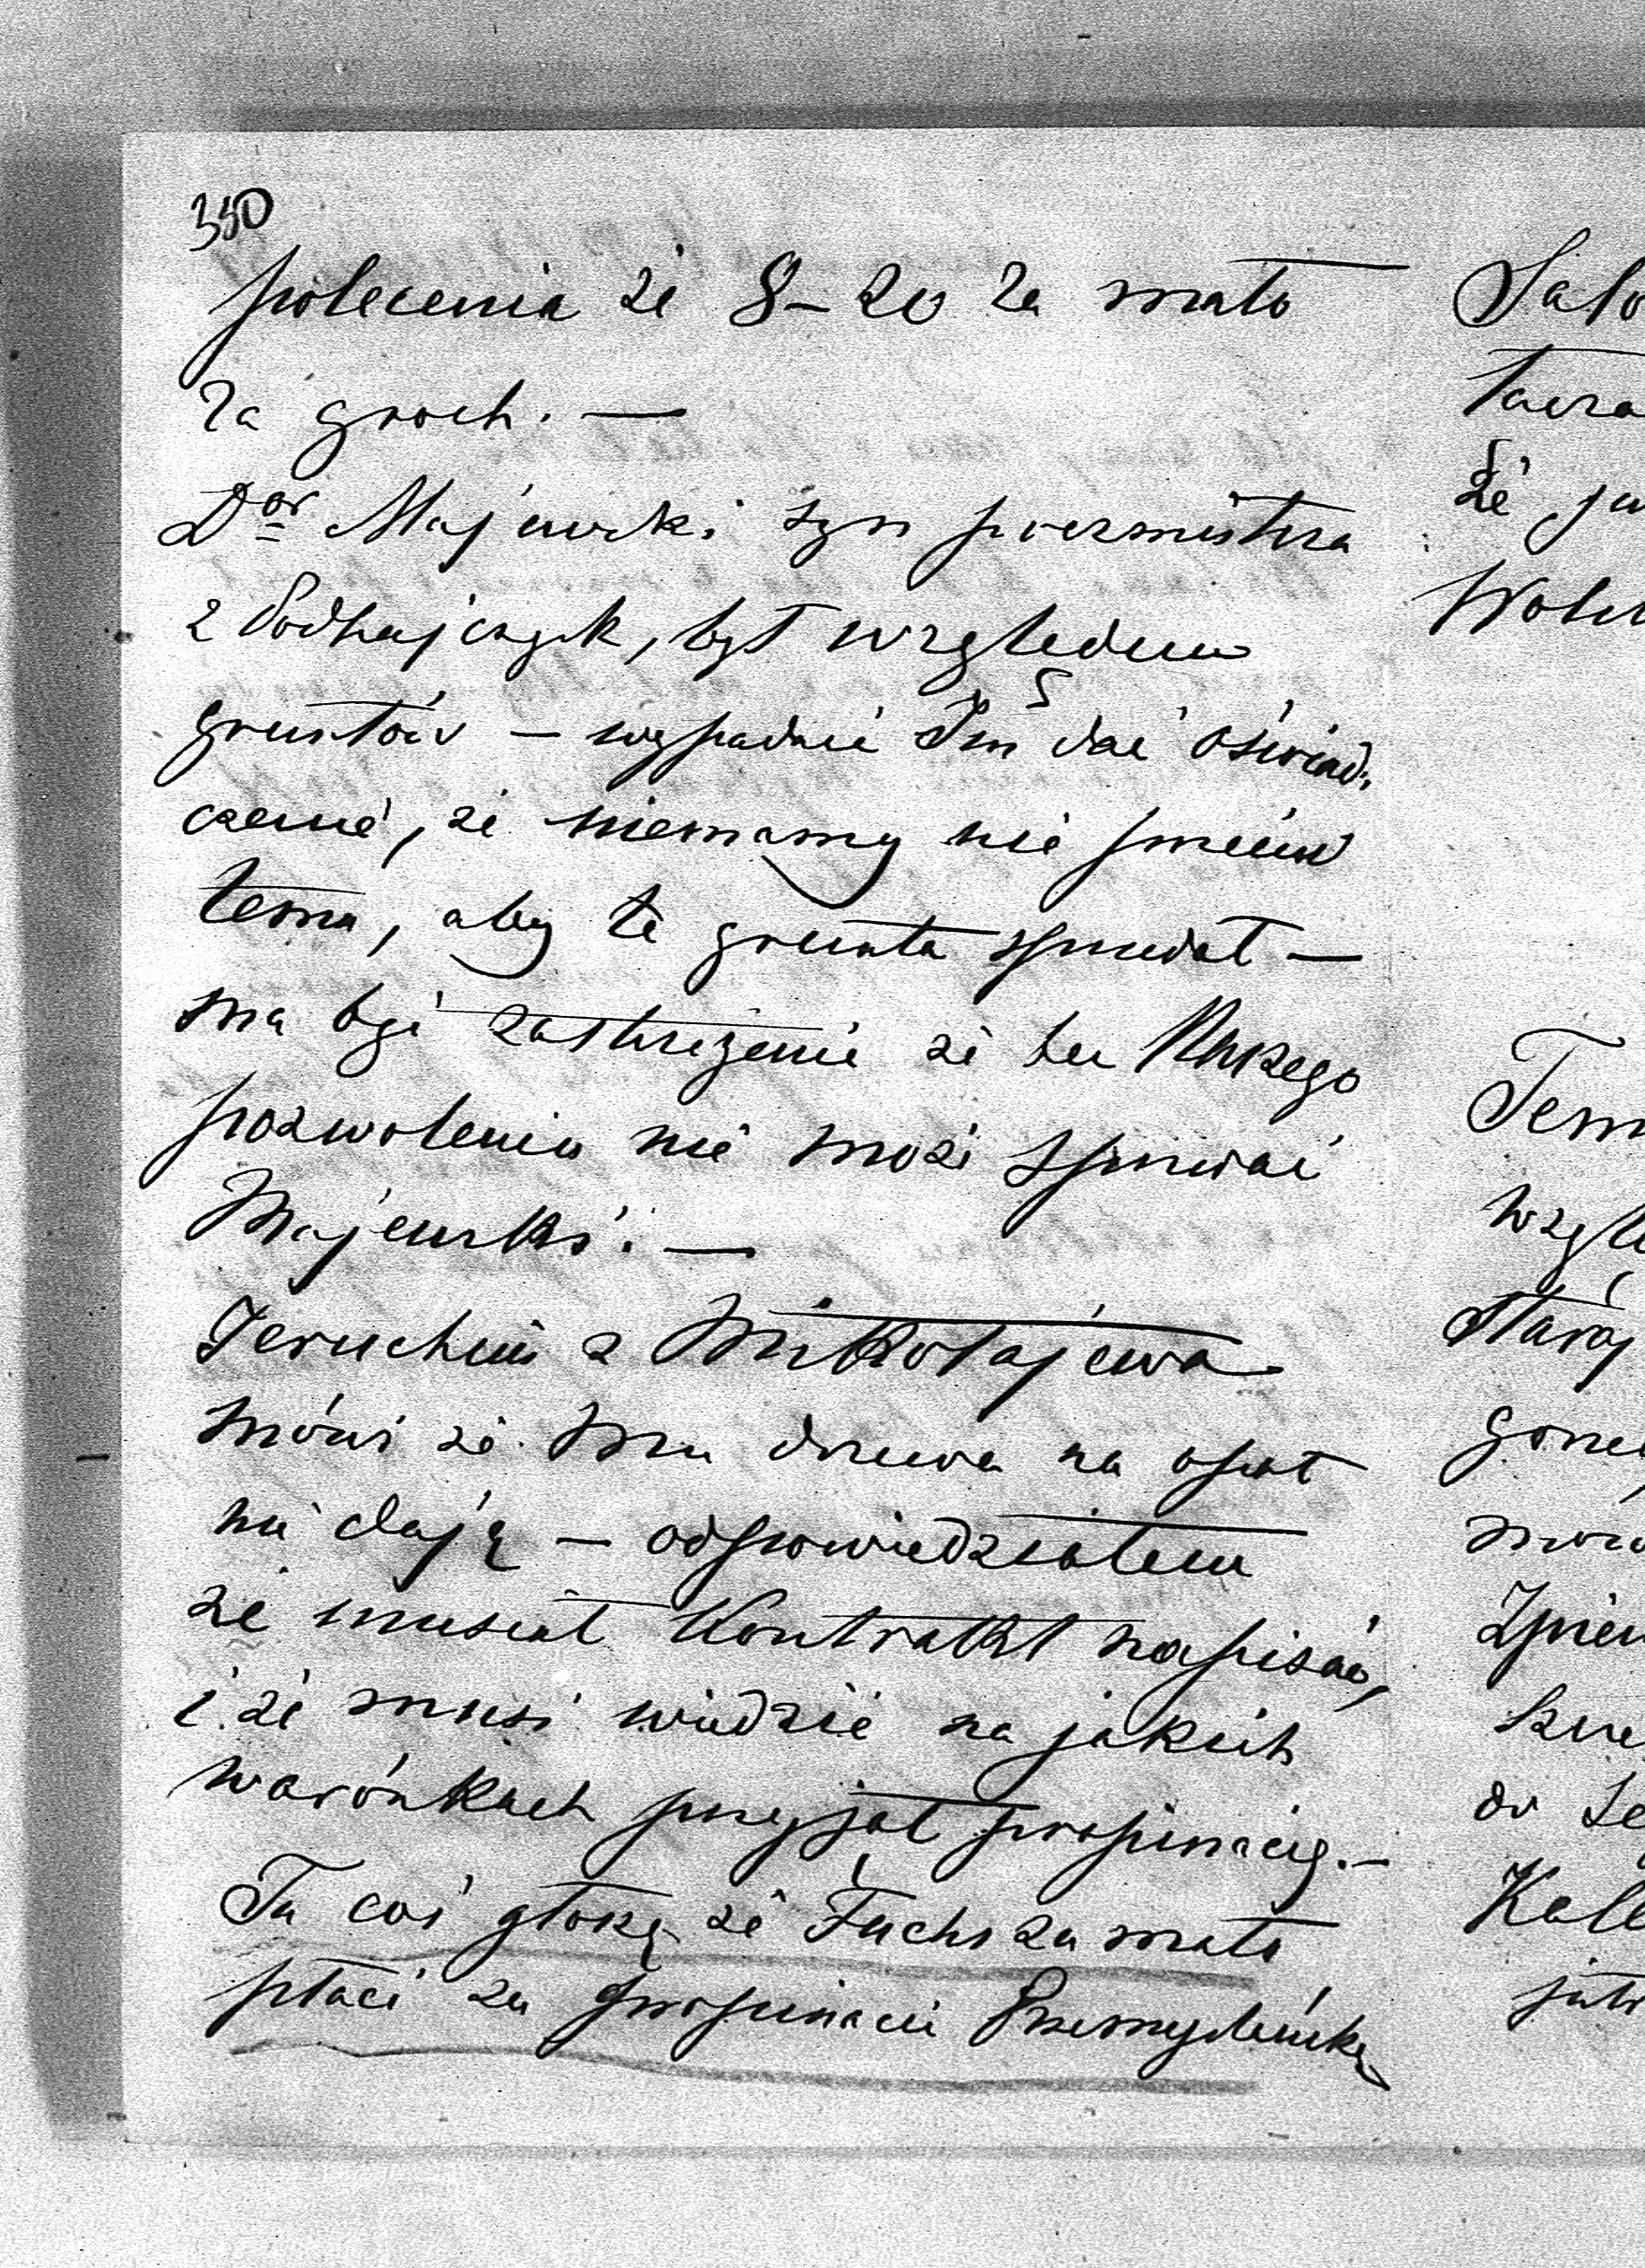 350
polecenia że 8-20 za mało
za groch. —
Dor Majewski syn poczmistrza
z Podhajczyk, był względem
gruntów — wypadnie Im dać oświad-
czenie, że niemamy nic przeciw
temu, aby te grunta sprzedał —
ma być zastrzeżenie że bez Naszego
pozwolenia nie może sprzedać
Majewski. —
Jeruchim z Mikołajewa
mówi że mu drzewa na opał
nie dają — odpowiedziałem
że musiał Kontrakt napisać,
i że musi wiedzieć na jakich
warónkach przyjął propinacię. —
Tu coś głoszą że Fuchs za mało
płaci za propinacii Przemyśleńską
Sało
tacza
że ju
Wolu
Tem
wzgl
Staraj
gorze
mów
do Se
Kall
jutr